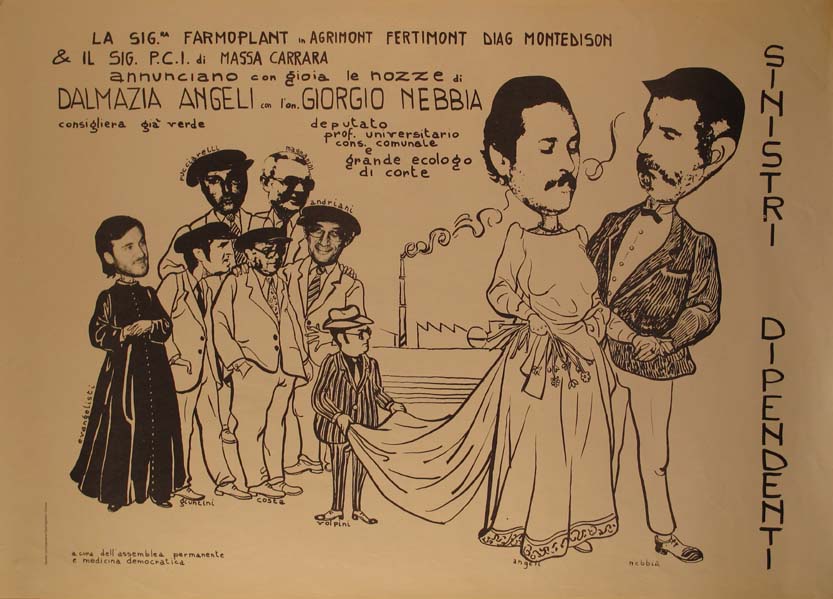 LA SIG.RA FARMOPLANT in AGRIMONT FERTIMONT DIAG MONTEDISON
& IL SIG. P.C.I. di MASSA CARRARA
annunciano con gioia le nozze di
DALMAZIA ANGELI con l'on. GIORGIO NEBBIA
consigliera già verde
deputato
prof. universitario
cons. comunale
e
grande ecologo
di corte
SINISTRI DIPENDENTI
andriani
evangelisti
giuntini
costa
volpini
angeli
nebbia
a cura dell'assemblea permanente
e medicina democratica